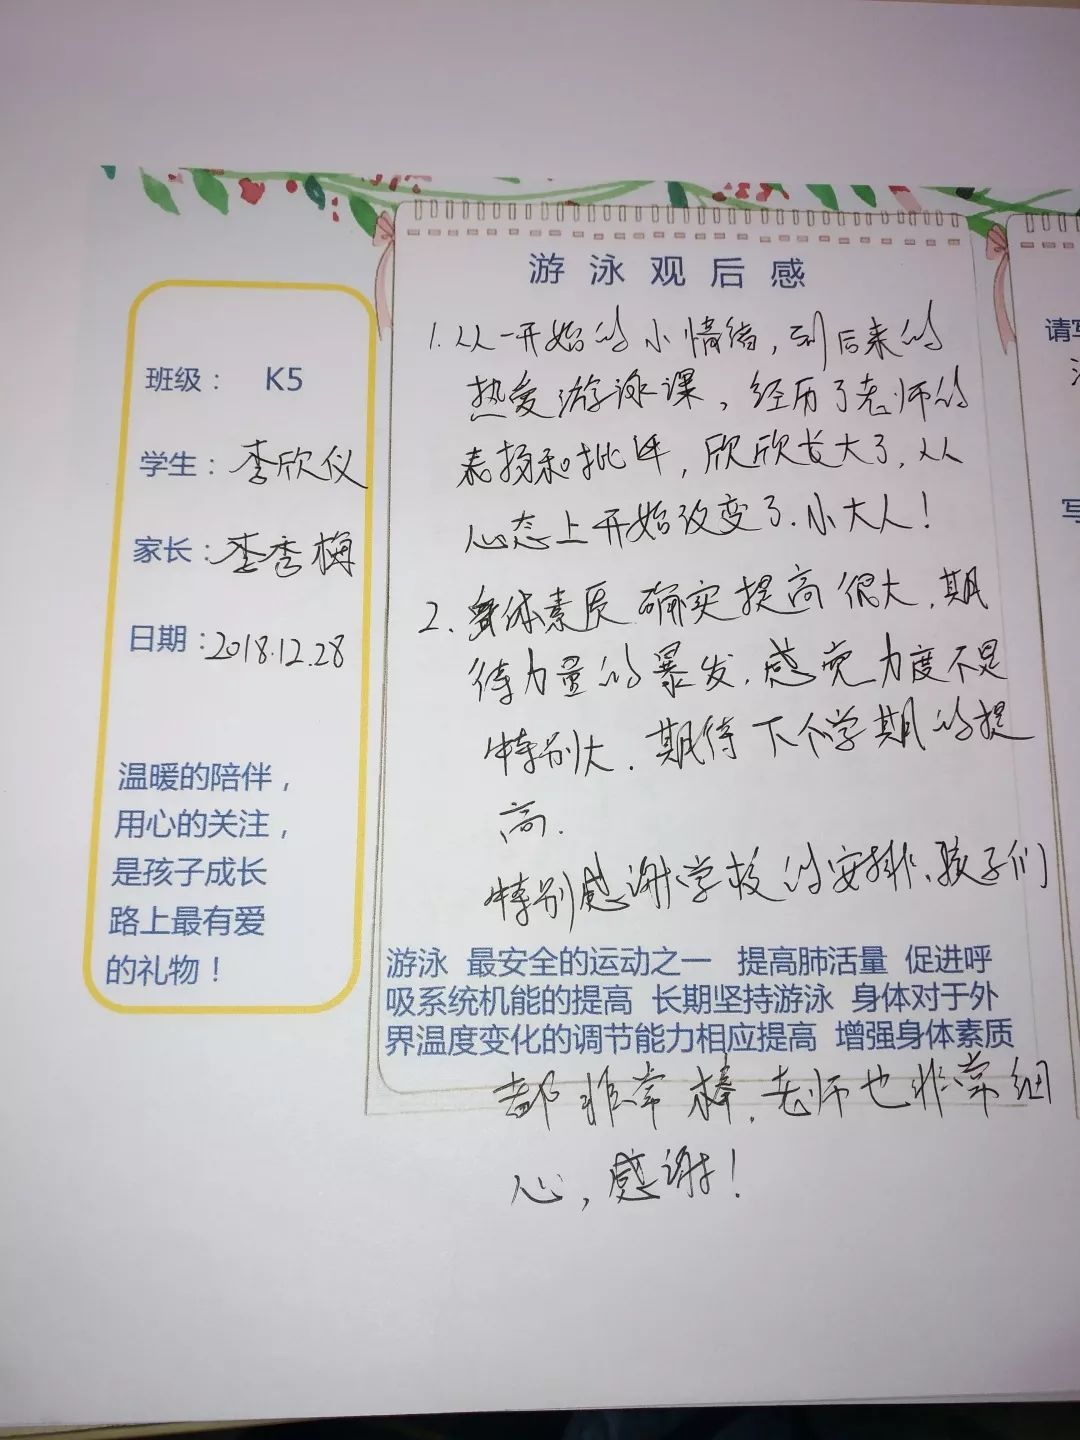 游泳观后感
班级： K5
学生：李欣仪
家长：李秀梅
日期：2018.12.28
温暖的陪伴，
用心的关注，
是孩子成长
路上最有爱
的礼物！
1.从一开始的小情绪,到后来的
热爱游泳课,经历了老师的
表扬和批评,欣欣长大了.从
心态上开始改变了.小大人!
2.身体素质确实提高很大.期
待力量的暴发.感觉力度不是
特别大.期待下个学期的提
高.
特别感谢学校的安排、孩子们
游泳 最安全的运动之一 提高肺活量 促进呼
吸系统机能的提高 长期坚持游泳 身体对于外
界温度变化的调节能力相应提高 增强身体素质
都非常棒.老师也非常细
心,感谢!
请写
写